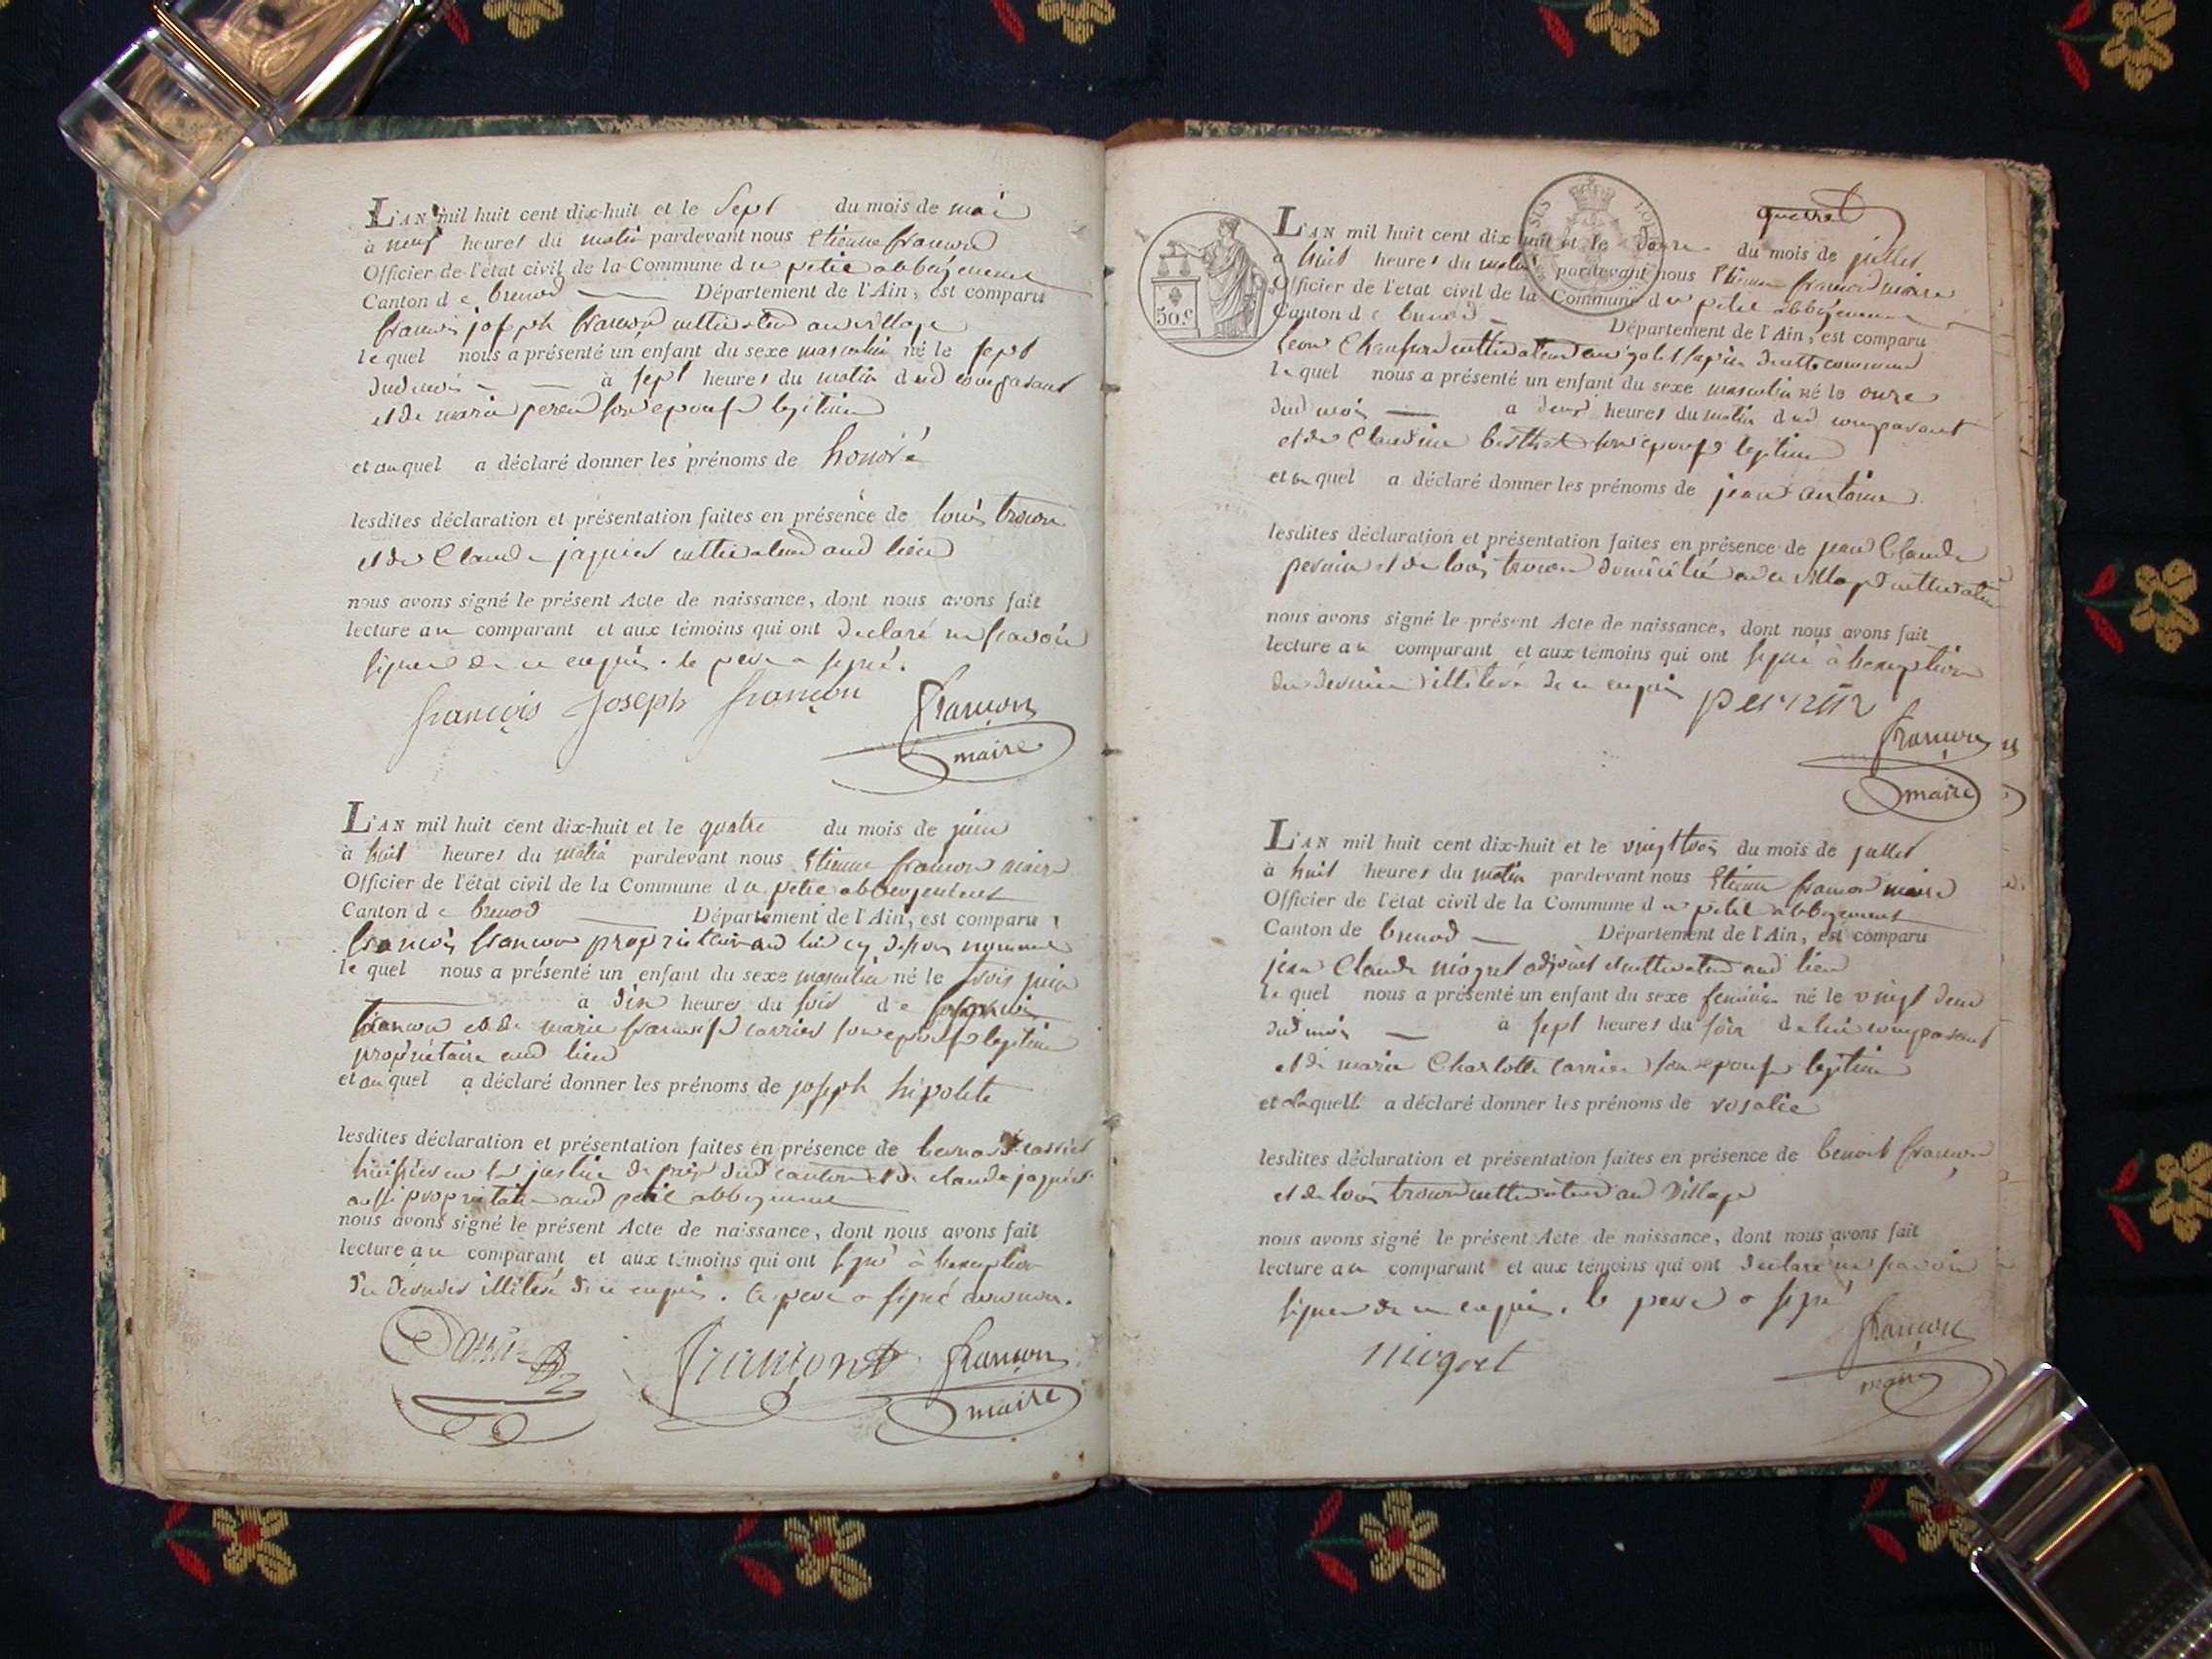 L'AN mil huit cent dix-huit et le sept du mois de mai
à neuf heures du matin pardevant nous Etienne françon
Officier de l'état civil de la Commune du petit abbergement
Canton de brenod Département de l'Ain, est comparu
françois joseph françon cultivateur au village
lequel nous a présenté un enfant du sexe masculin né le sept
dud mois à sept heures du matin dud comparant
et de marie perrin son epouse legitime
et auquel a déclaré donner les prénoms de honoré
lesdites déclaration et présentation faites en présence de louis trocon
et de Claude jaquiet cultivateur aud lieu
nous avons signé le présent Acte de naissance, dont nous avons fait
lecture au comparant et aux témoins qui ont declaré ne scavoir
signer de ce enquis. le pere a signé.
françois Joseph françon françon
maire
L'AN mil huit cent dix-huit et le quatre du mois de juin
à huit heures du matin pardevant nous Etienne françon maire
Officier de l'état civil de la Commune du petit abbergement
Canton de brenod Département de l'Ain, est comparu
françois françon proprietaire aud lieu cy dessus nommé
lequel nous a présenté un enfant du sexe masculin né le trois juin
à dix heures du soir de françois
françon et de marie françoise carrier son epouse legitime
propriétaire aud lieu
et auquel a déclaré donner les prénoms de joseph hipolite
lesdites déclaration et présentation faites en présence de bernard carrier
huissier en la justice de paix dud canton et de claude jaquiet
aussi propriétaire aud petit abbergement
nous avons signé le présent Acte de naissance, dont nous avons fait
lecture au comparant et aux témoins qui ont signé à l'exception
du dernier illiteré de ce enquis. le pere a signé avec nous.
françon françon
maire
querret
L'AN mil huit cent dix-huit et le douze du mois de juillet
à huit heures du matin pardevant nous Etienne françon maire
Officier de l'état civil de la Commune du petit abbergement
50.c
Canton de brenod Département de l'Ain, est comparu
cultivateur de cette commune
lequel nous a présenté un enfant du sexe masculin né le onze
dud mois à deux heures du matin dud comparant
et de Claudine berthet son epouse legitime
et auquel a déclaré donner les prénoms de jean antoine
lesdites déclaration et présentation faites en présence de jean Claude
perrin et de louis trocon domicilié aud village cultivateur
nous avons signé le présent Acte de naissance, dont nous avons fait
lecture au comparant et aux témoins qui ont signé à l'exception
du dernier illiteré de ce enquis perrin
françon
maire
L'AN mil huit cent dix-huit et le vingt trois du mois de juillet
à huit heures du matin pardevant nous Etienne françon maire
Officier de l'état civil de la Commune du petit abbergement
Canton de brenod Département de l'Ain, est comparu
jean Claude miogret adjoint et cultivateur aud lieu
lequel nous a présenté un enfant du sexe feminin né le vingt deux
dud mois à sept heures du soir de lui comparant
et de marie Charlotte carrier son epouse legitime
et à laquelle a déclaré donner les prénoms de rosalie
lesdites déclaration et présentation faites en présence de benoit françon
et de louis trocon cultivateur au village
nous avons signé le présent Acte de naissance, dont nous avons fait
lecture au comparant et aux témoins qui ont declaré ne scavoir
signer de ce enquis. le pere a signé
miogret françon
maire